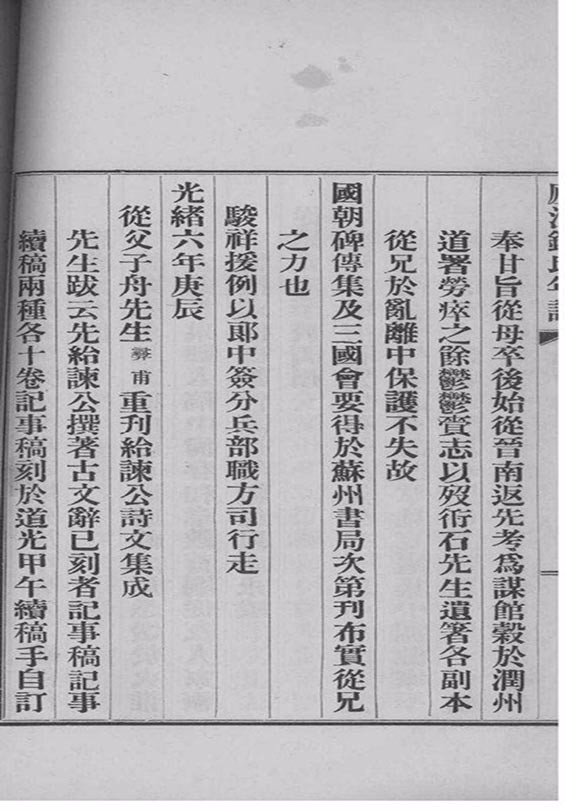 奉甘旨從母卒後始從晉南返先考爲謀館穀於潤州
道署勞瘁之餘鬱鬱賫志以歿衎石先生遺箸各副本
從兄於亂離中保護不失故
國朝碑傳集及三國會要得於蘇州書局次第刊布實從兄
之力也
駿祥援例以郎中簽分兵部職方司行走
光緒六年庚辰
從父子舟先生彝甫重刊給諫公詩文集成
先生跋云先給諫公撰著古文辭已刻者記事稿記事
續稿兩種各十卷記事稿刻於道光甲午續稿手自訂